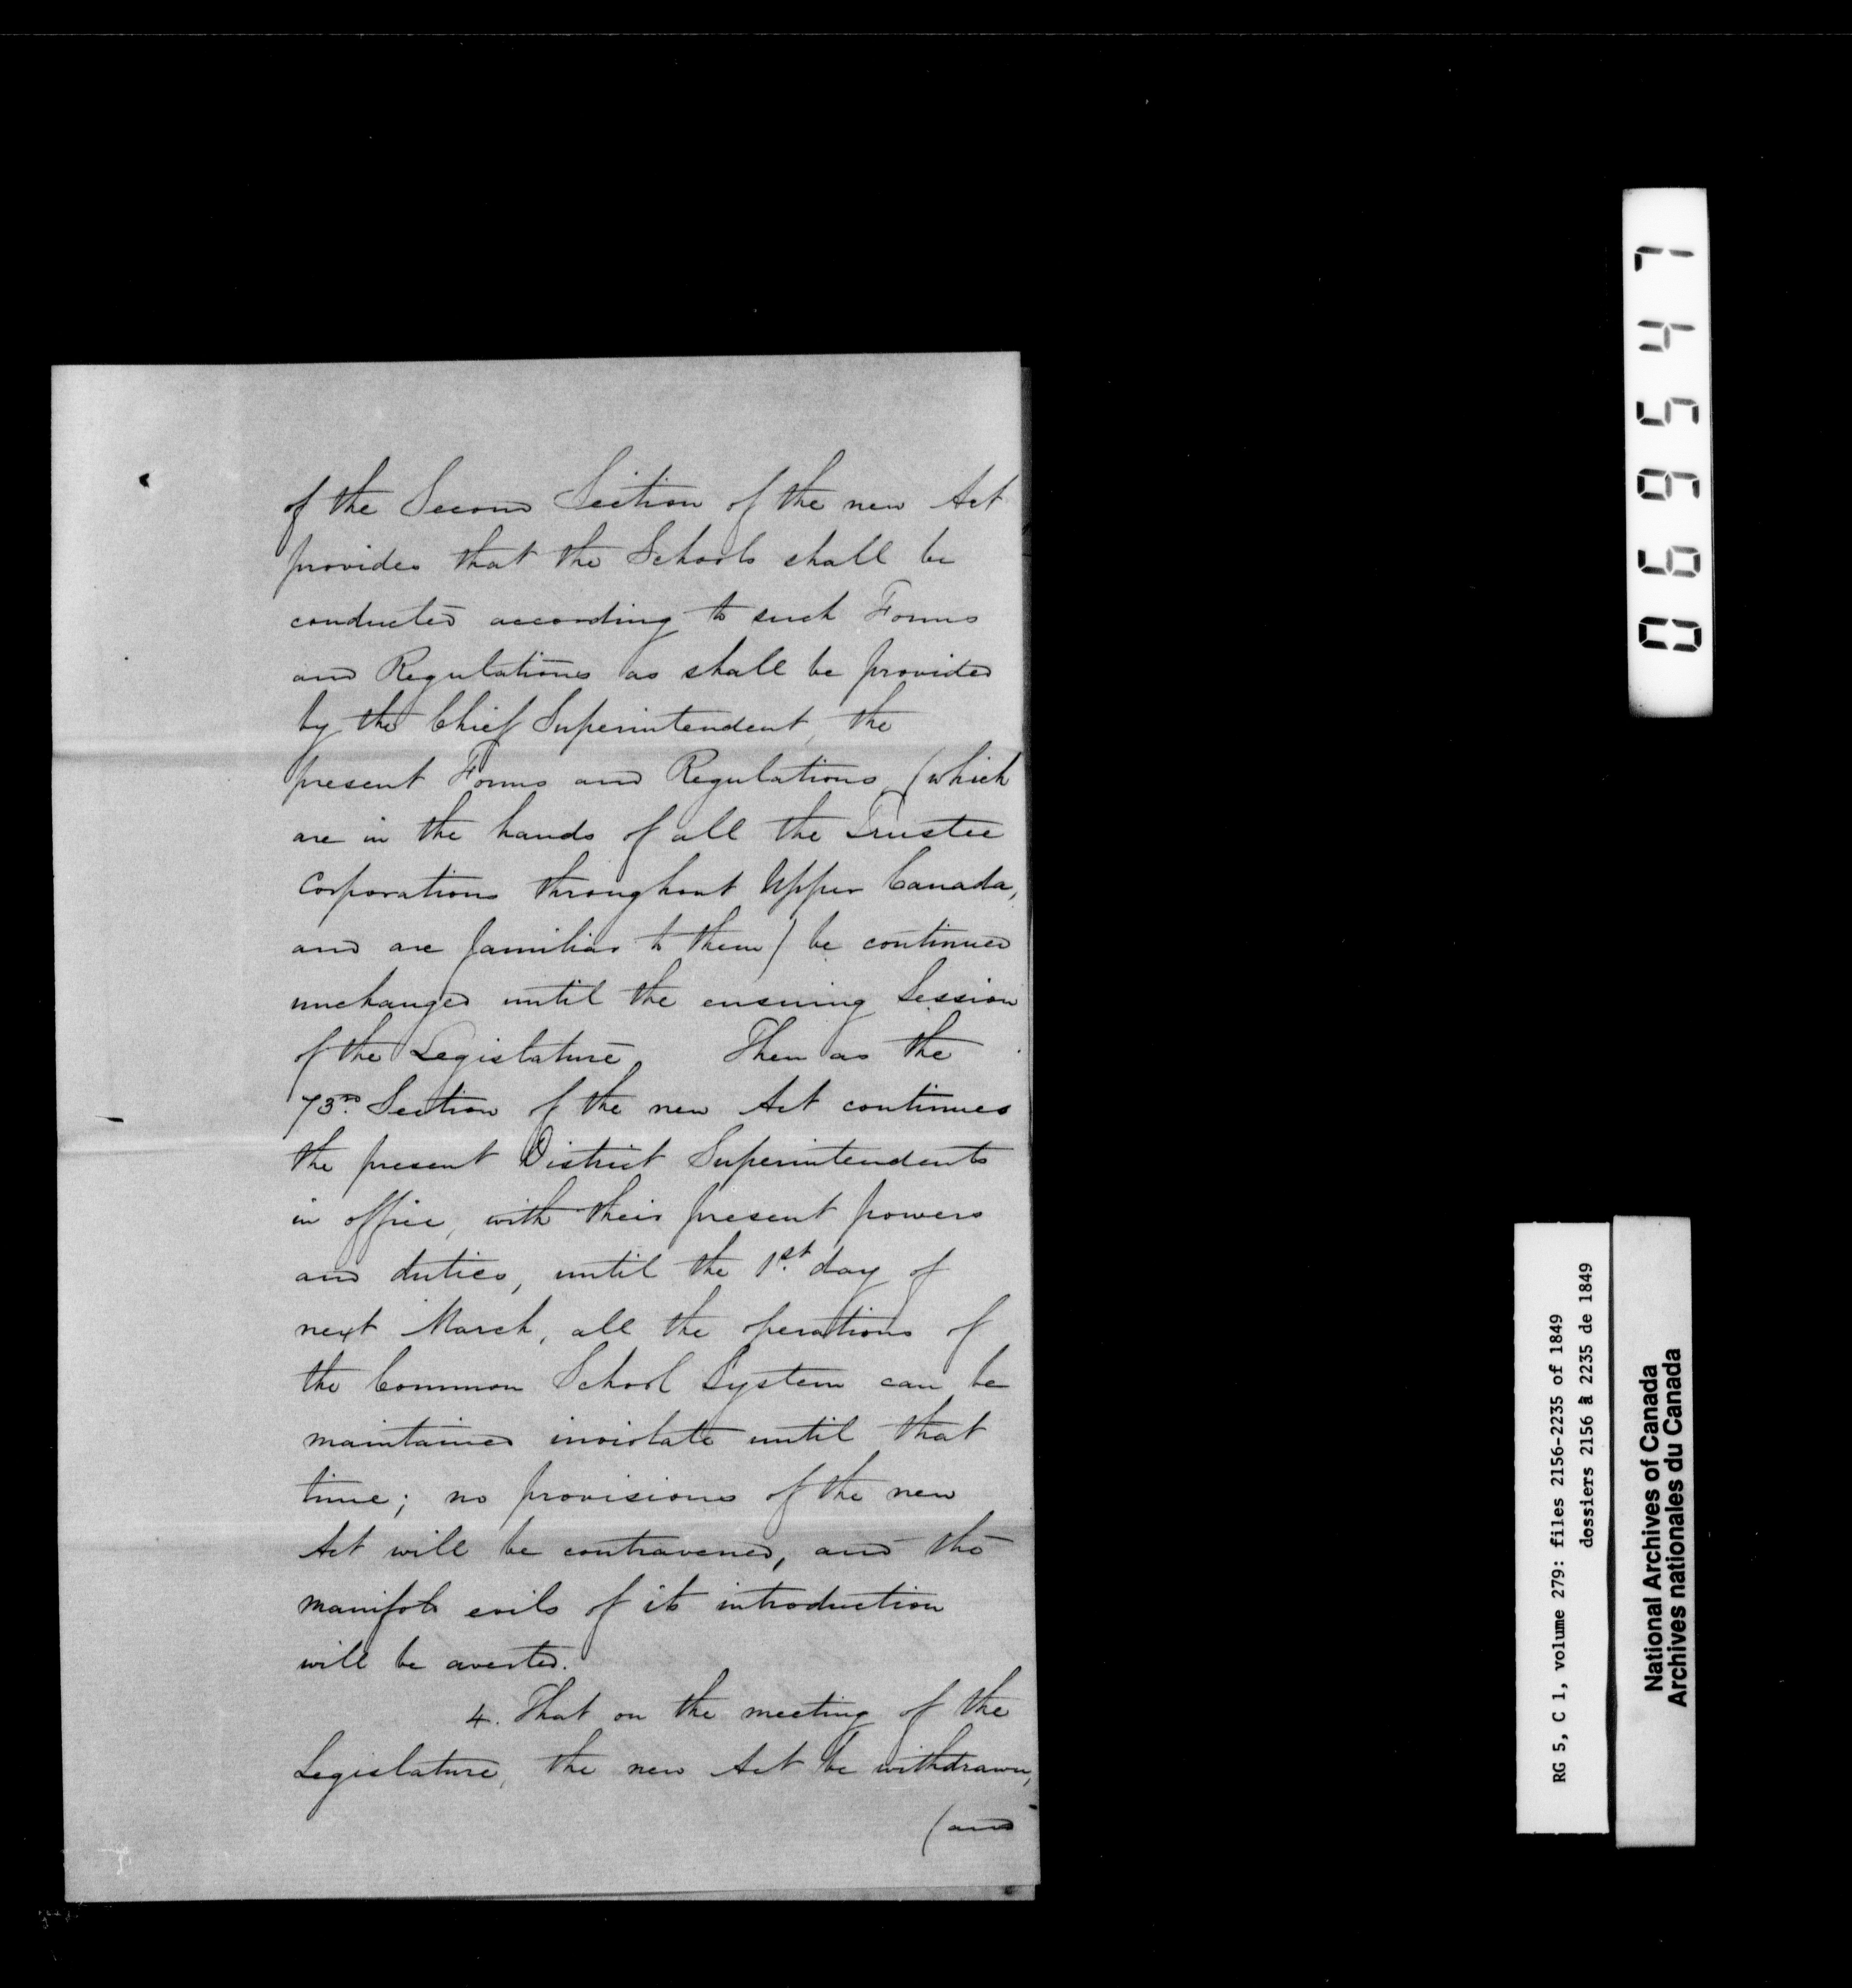 of the Second Section of the new Act
provides that the Schools shall be
conducted according to such Forms
and Regulations as shall be provided
by the Chief Superintendent, the
present Forms and Regulations, (which
are in the hands of all the Trustee
Corporations throughout Upper Canada,
and are familiar to them) be continued
unchanged until the ensuing Session
of the Legislature. Then as the
73rd. Section of the new Act continues
the present District Superintendents
in office, with their present powers
and duties, until the 1st. day of
next March, all the operations of
the Common School System can be
maintained inviolate until that
time; no provisions of the new
Act will be contravened, and the
manifold evils of its introduction
will be averted.
4. That on the meeting of the
Legislature, the new Act be withdrawn,
(and
069547
RG 5, C 1, volume 279: files 2156-2235 of 1849
dossiers 2156 à 2235 de 1849
National Archives of Canada
Archives nationales du Canada